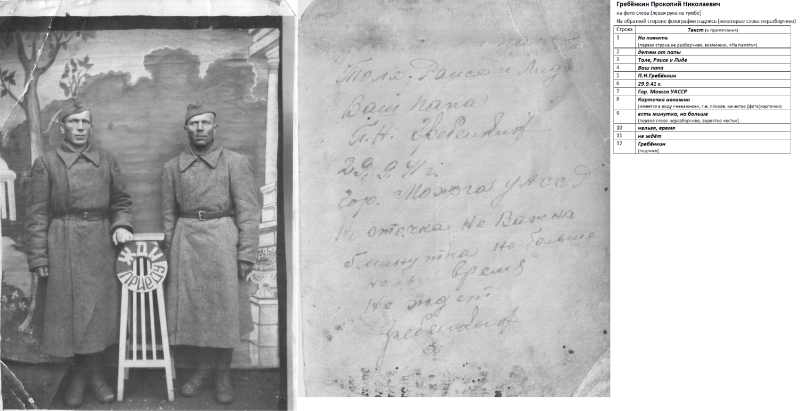 ЖДИ
ПРИЕДУ
Толе, Раисе и Лиде
Ваш папа
П.Н. Гребенкин
29.9.41 г.
Гор. Можга УАССР
не важна
минутка но больше
нельз время
не ждет
Гребенкин
Гребёнкин Прокопий Николаевич
на фото слева (левая рука на тумбе)
На обратной стороне фотографии надпись (некоторые слова неразборчиво)
Строка Текст (и примечания)
1 На память
(первая строка не разборчиво, возможно, «На память»)
2 детям от папы
3 Толе, Раисе и Лиде
4 Ваш папа
5 П.Н.Гребёнкин
6 29.9.41 г.
7 Гор. Можга УАССР
8 Карточка неважна
(имеется в виду «неважная», т.е. плохое, качество (фото)карточки)
9 есть минутка, но больше
(первое слово неразборчиво, вероятно «есть»)
10 нельзя, время
11 не ждёт
12 Гребёнкин
(подпись)